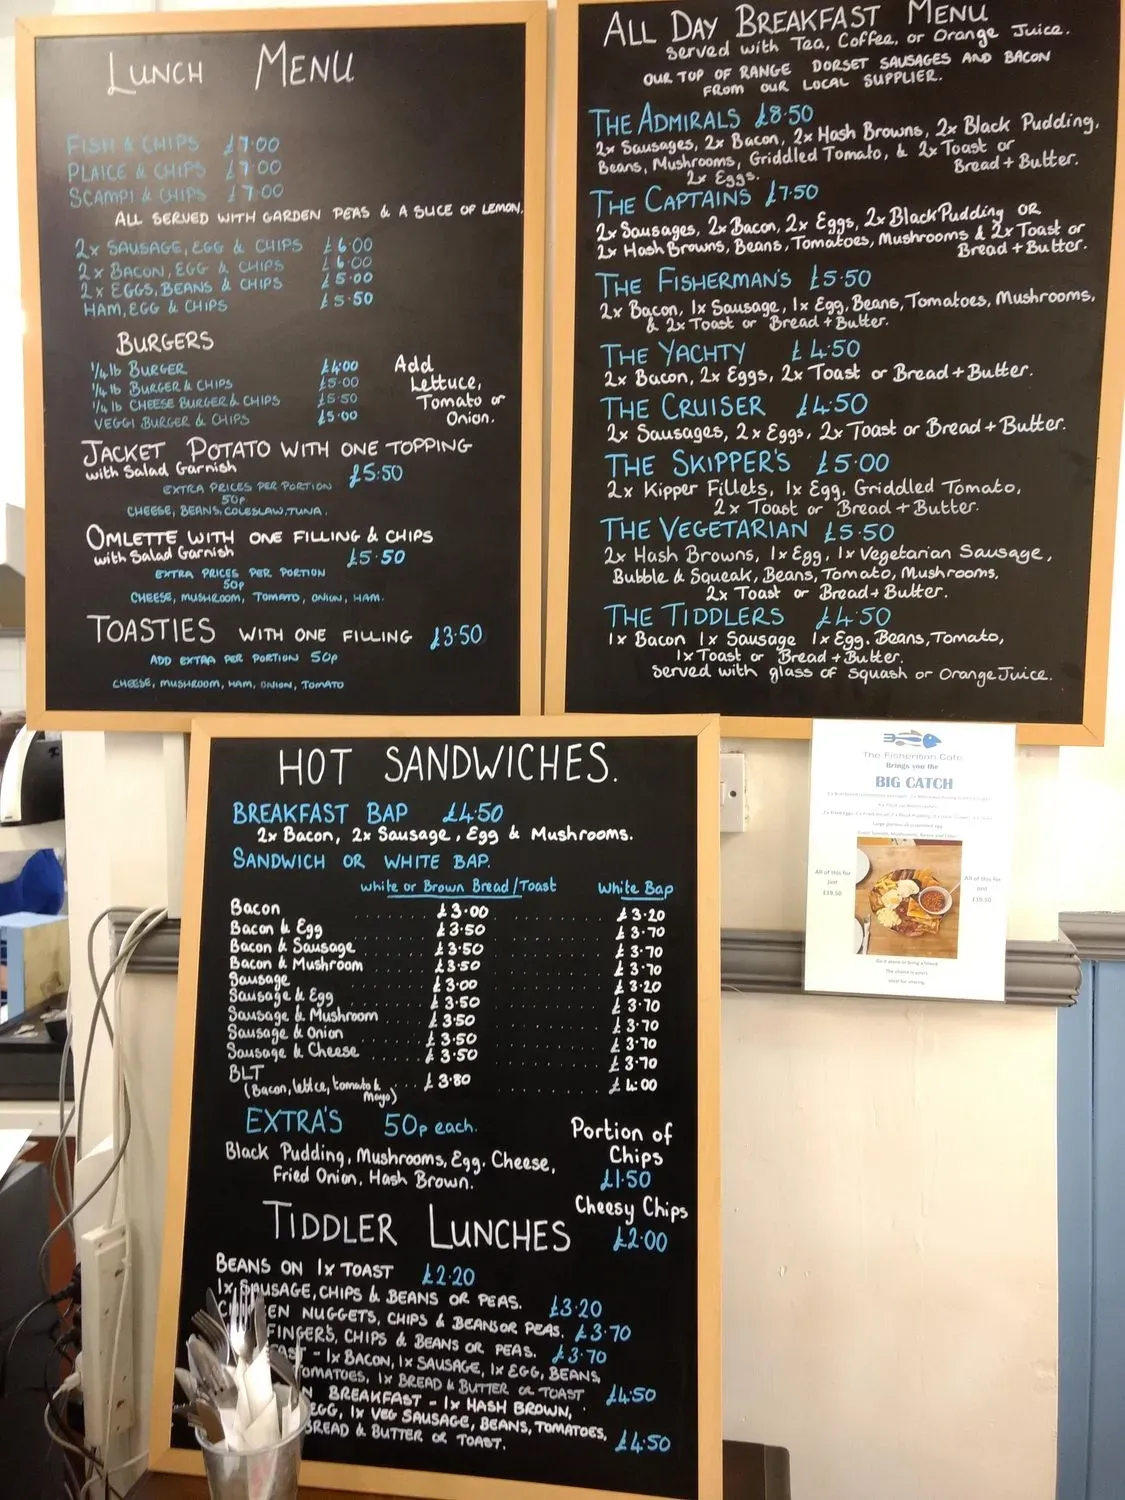 LUNCH MENU
FISH & CHIPS £7·00
PLAICE & CHIPS £7·00
SCAMPI & CHIPS £7·00
ALL SERVED WITH GARDEN PEAS & A SLICE OF LEMON.
2x SAUSAGE, EGG & CHIPS £6·00
2x BACON, EGG & CHIPS £6·00
2x EGGS, BEANS & CHIPS £5·00
HAM, EGG & CHIPS £5·50
BURGERS
1/4 lb BURGER £4·00
1/4 lb BURGER & CHIPS £5·00
1/4 lb CHEESE BURGER & CHIPS £5·50
VEGGI BURGER & CHIPS £5·00
Add
Lettuce,
Tomato or
Onion.
JACKET POTATO WITH ONE TOPPING
with Salad Garnish £5·50
EXTRA PRICES PER PORTION
50p
CHEESE, BEANS, COLESLAW, TUNA.
OMLETTE WITH ONE FILLING & CHIPS
with Salad Garnish £5·50
EXTRA PRICES PER PORTION
50p
CHEESE, MUSHROOM, TOMATO, ONION, HAM.
TOASTIES WITH ONE FILLING £3·50
ADD EXTRA PER PORTION 50p
CHEESE, MUSHROOM, HAM, ONION, TOMATO
ALL DAY BREAKFAST MENU
served with Tea, Coffee, or Orange Juice.
OUR TOP OF RANGE DORSET SAUSAGES AND BACON
FROM OUR LOCAL SUPPLIER.
THE ADMIRALS £8·50
2x Sausages, 2x Bacon, 2x Hash Browns, 2x Black Pudding,
Beans, Mushrooms, Griddled Tomato, & 2x Toast or
2x Eggs. Bread + Butter.
THE CAPTAINS £7·50
2x Sausages, 2x Bacon, 2x Eggs, 2x Black Pudding OR
2x Hash Browns, Beans, Tomatoes, Mushrooms & 2x Toast or
Bread + Butter.
THE FISHERMAN'S £5·50
2x Bacon, 1x Sausage, 1x Egg, Beans, Tomatoes, Mushrooms,
& 2x Toast or Bread + Butter.
THE YACHTY £4·50
2x Bacon, 2x Eggs, 2x Toast or Bread + Butter.
THE CRUISER £4·50
2x Sausages, 2x Eggs, 2x Toast or Bread + Butter.
THE SKIPPER'S £5·00
2x Kipper Fillets, 1x Egg, Griddled Tomato,
2x Toast or Bread + Butter.
THE VEGETARIAN £5·50
2x Hash Browns, 1x Egg, 1x Vegetarian Sausage,
Bubble & Squeak, Beans, Tomato, Mushrooms,
2x Toast or Bread + Butter.
THE TIDDLERS £4·50
1x Bacon 1x Sausage 1x Egg, Beans, Tomato,
1x Toast or Bread + Butter.
served with glass of Squash or Orange Juice.
HOT SANDWICHES.
BREAKFAST BAP £4·50
2x Bacon, 2x Sausage, Egg & Mushrooms.
SANDWICH OR WHITE BAP.
White or Brown Bread/Toast White Bap
Bacon £3·00 £3·20
Bacon & Egg £3·50 £3·70
Bacon & Sausage £3·50 £3·70
Bacon & Mushroom £3·50 £3·70
Sausage £3·00 £3·20
Sausage & Egg £3·50 £3·70
Sausage & Mushroom £3·50 £3·70
Sausage & Onion £3·50 £3·70
Sausage & Cheese £3·50 £3·70
BLT £3·80 £4·00
(Bacon, lettce, tomato &
Mayo)
EXTRA'S 50p each.
Black Pudding, Mushrooms, Egg, Cheese,
Fried Onion, Hash Brown.
Portion of
Chips
£1·50
Cheesy Chips
£2·00
TIDDLER LUNCHES
BEANS ON 1x TOAST £2·20
1x SAUSAGE, CHIPS & BEANS OR PEAS. £3·20
EN NUGGETS, CHIPS & BEANS OR PEAS. £3·70
FINGERS, CHIPS & BEANS OR PEAS. £3·70
AST - 1x BACON, 1x SAUSAGE, 1x EGG, BEANS
OMATOES, 1x BREAD & BUTTER OR TOAST £4·50
N BREAKFAST - 1x HASH BROWN,
EGG, 1x VEG SAUSAGE, BEANS, TOMATOES,
BREAD & BUTTER OR TOAST. £4·50
The Fisherman Cafe
Brings you the
BIG CATCH
All of this for
just
£19.50
All of this for
just
£19.50